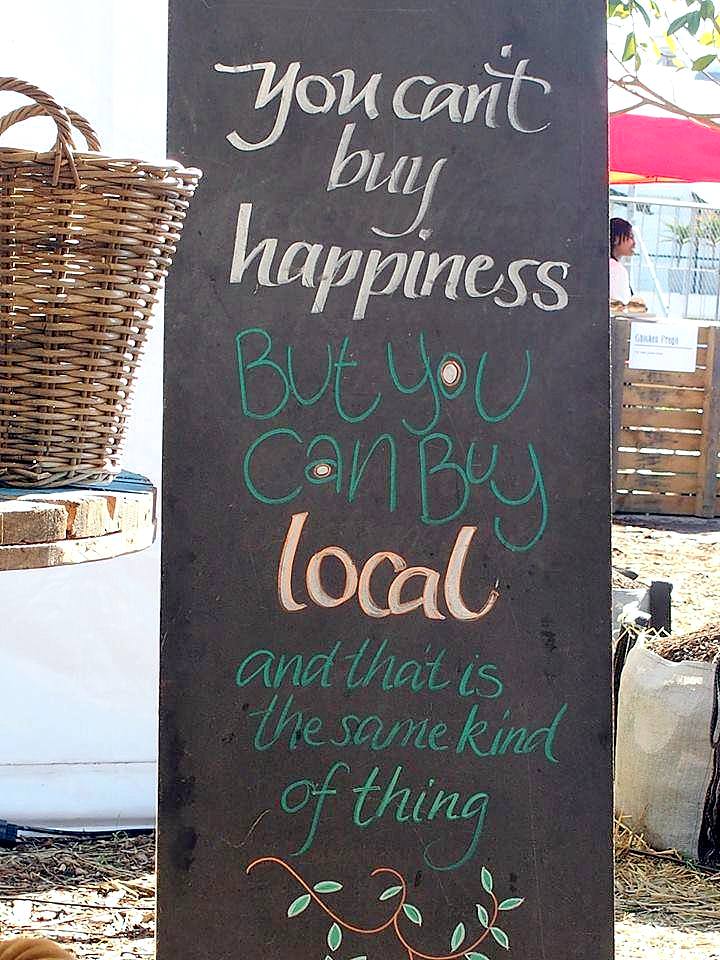 You can't
buy
happiness
But you
Can Buy
local
and that is
the same kind
of thing
Chicken Prego